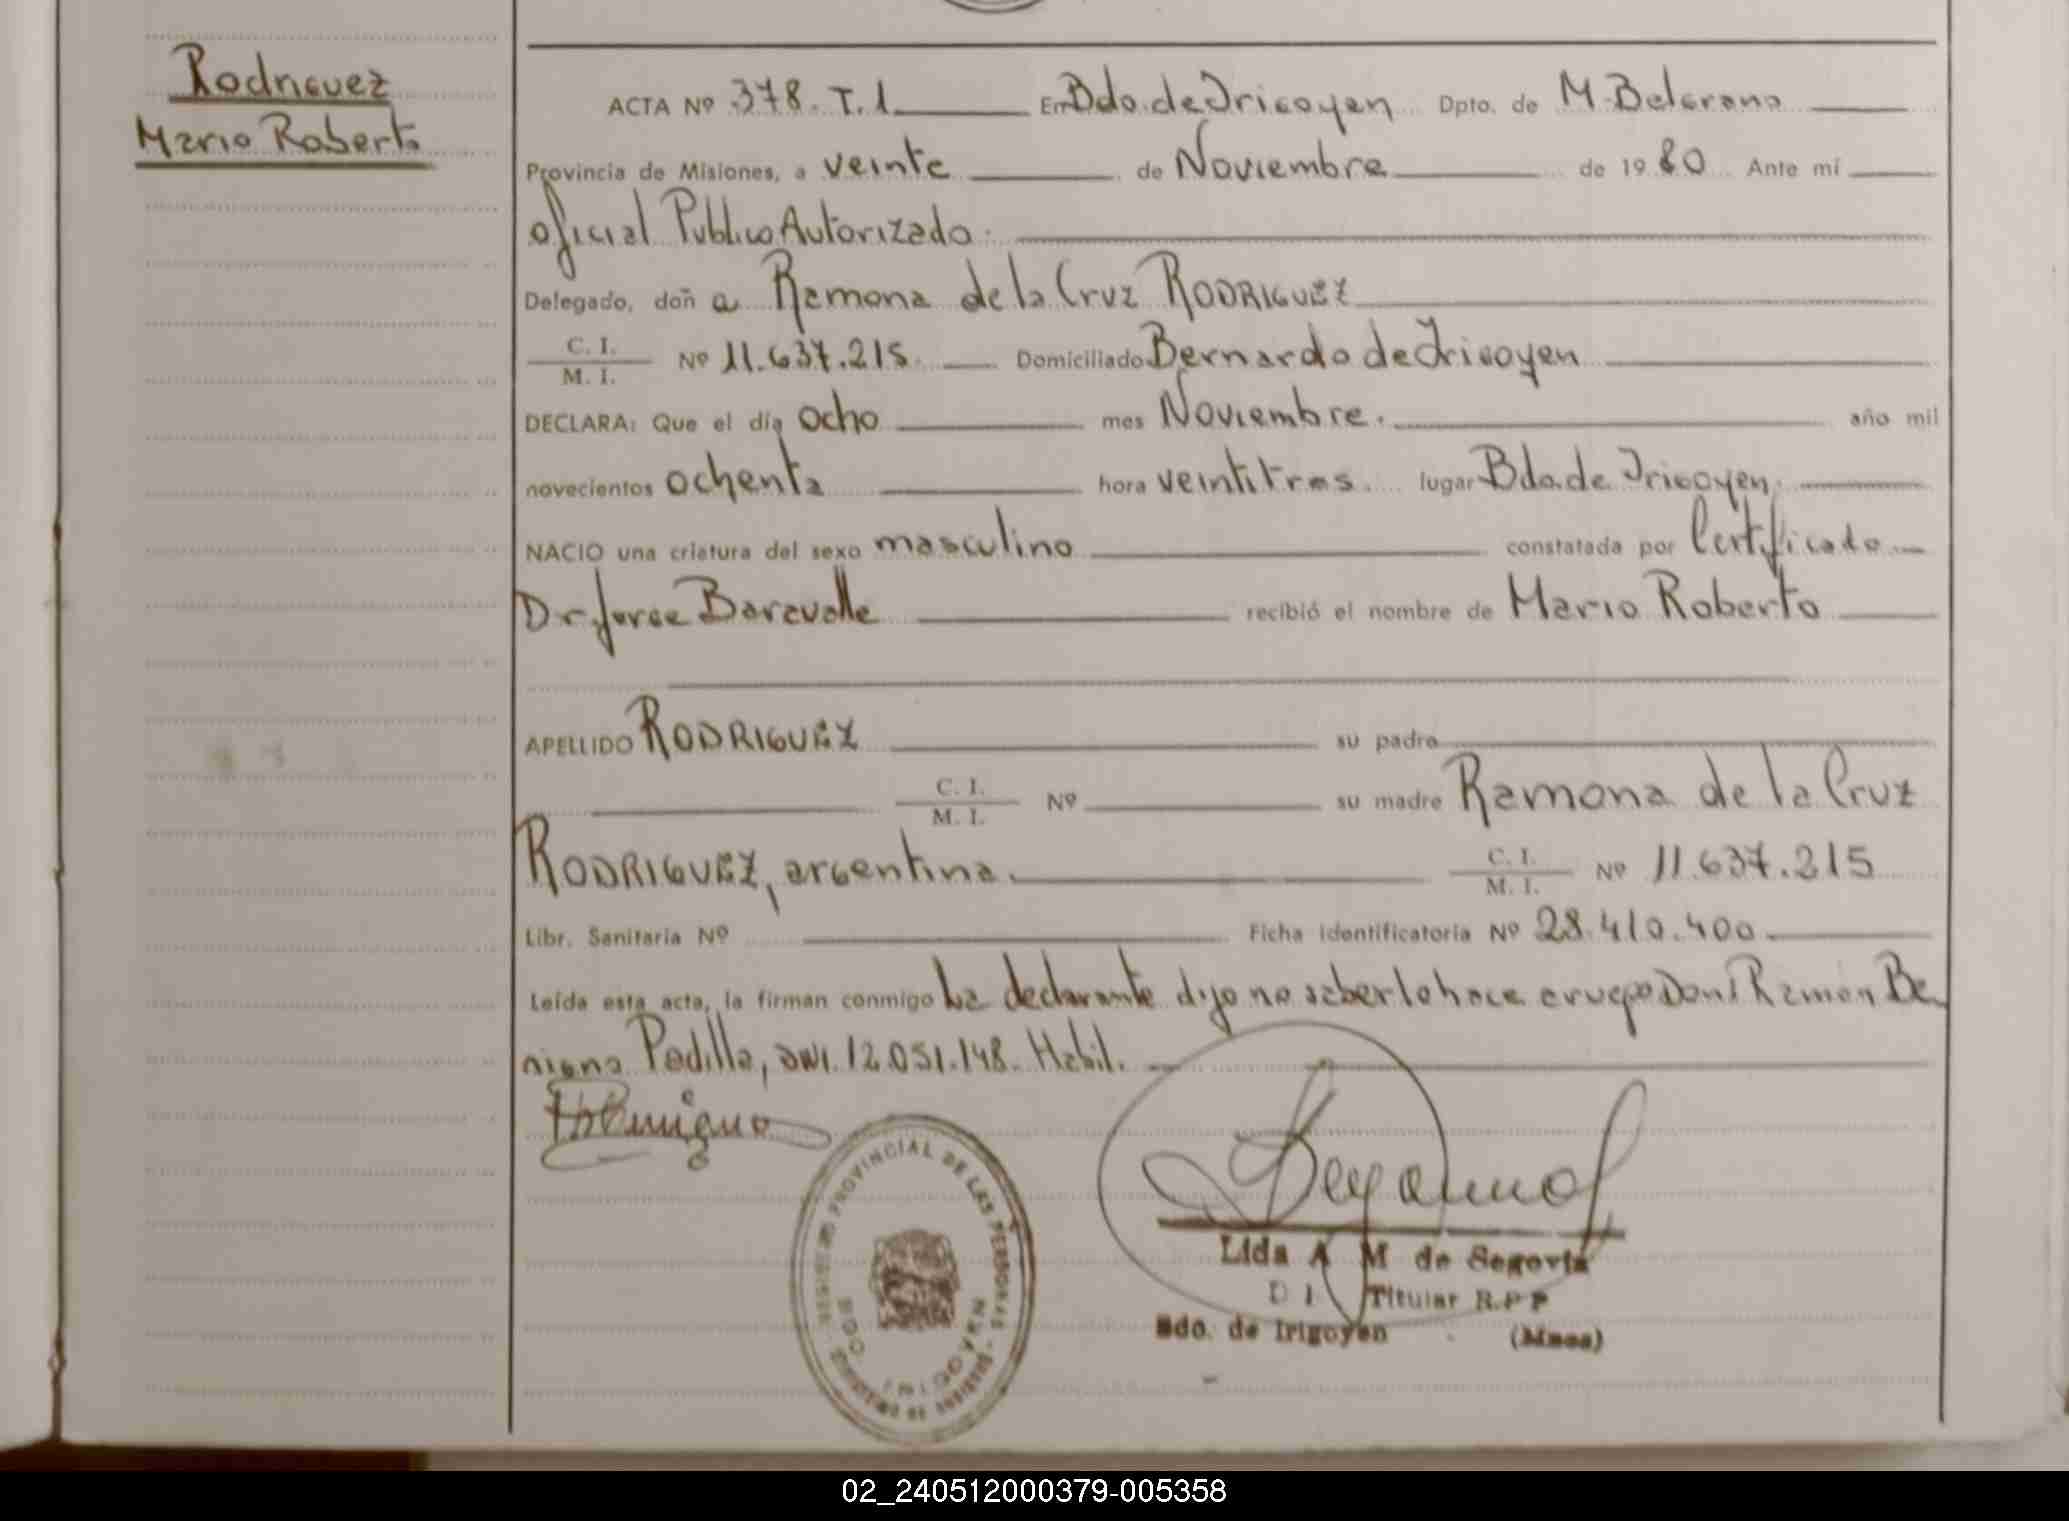 Rodriguez
Mario Roberto
ACTA Nº 378. T. 1 En Bdo. de Irigoyen Dpto. de M. Belgrano
Provincia de Misiones, a veinte de Noviembre de 19 80 Ante mí
oficial Publico Autorizado.
Delegado, doñ a Ramona de la Cruz RODRIGUEZ
C. I.
M. I. Nº 11.637.215. Domiciliado Bernardo de Irigoyen
DECLARA: Que el día ocho mes Noviembre. año mil
novecientos ochenta hora veintitres. lugar Bdo. de Irigoyen.
NACIO una criatura del sexo masculino constatada por Certificado
Dr. Jorge Baravalle recibió el nombre de Mario Roberto
APELLIDO RODRIGUEZ su padre
C. I.
M. I. Nº su madre Ramona de la Cruz
RODRIGUEZ, argentina. C. I.
M. I. Nº 11.637.215
Libr. Sanitaria Nº Ficha identificatoria Nº 28.410.400
Leída esta acta, la firman conmigo La declarante dijo no saber lo hace a ruego Don: Ramón Be
nigno Padilla, DNI. 12.051.148. Habil.
REGISTRO PROVINCIAL DE LAS PERSONAS
BDO. IRIGOYEN
Lida A M de Segovia
D I Titular R.P.P
Bdo. de Irigoyen (Mnes)
02_240512000379-005358